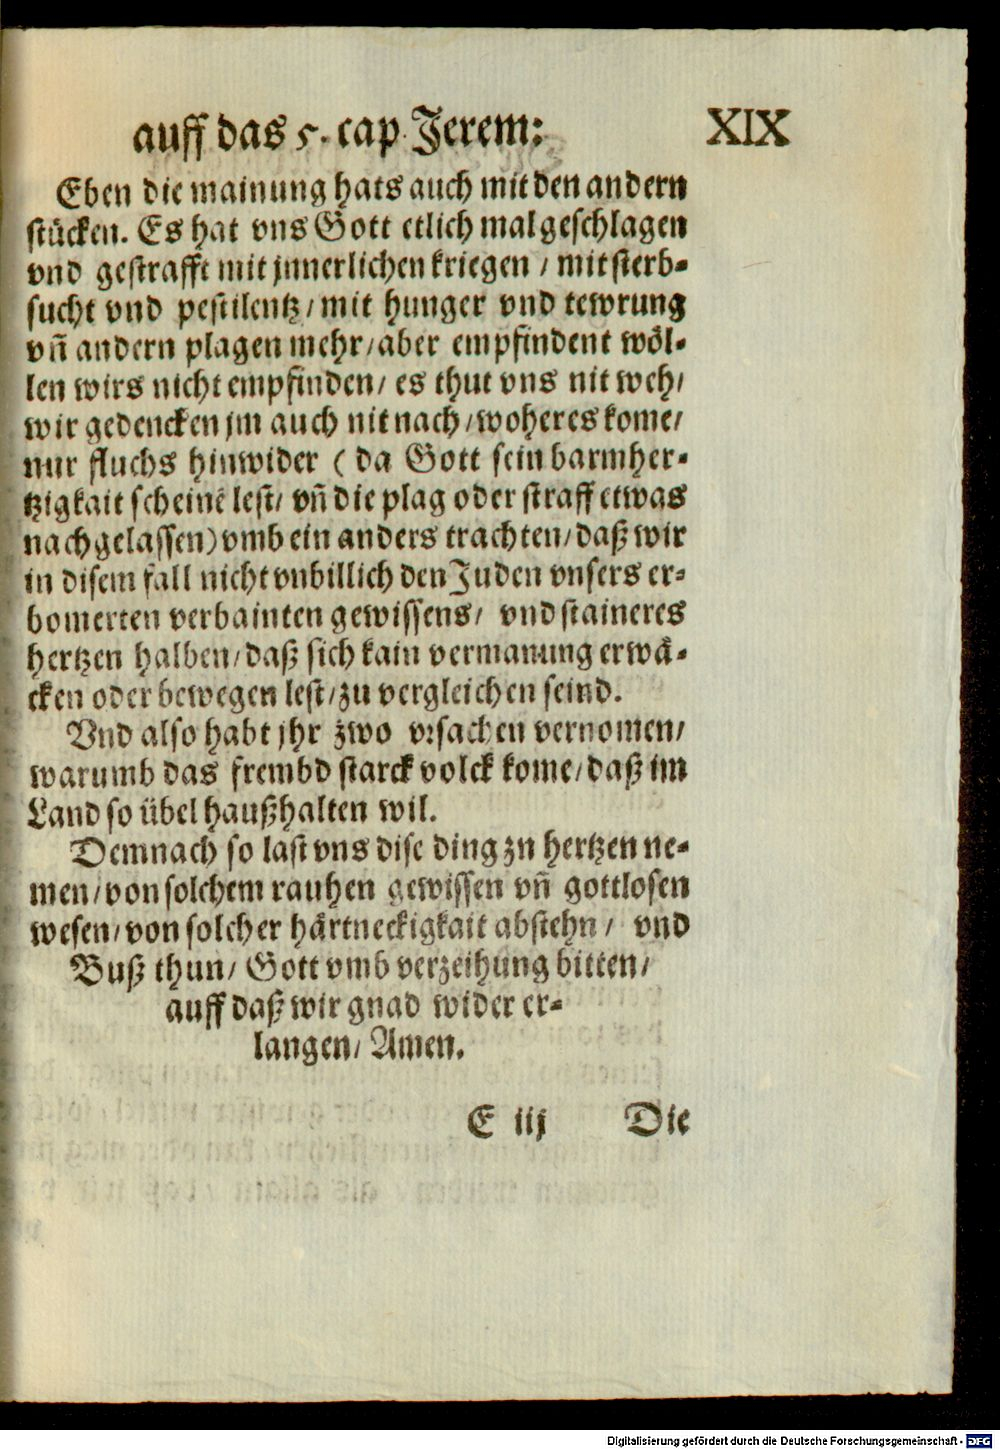 auff das 5. cap Jerem: XIX
Eben die mainung hats auch mit den andern
stücken. Es hat vns Gott etlich mal geschlagen
vnd gestrafft mit jnnerlichen kriegen / mit sterb-
sucht vnd pestilentz / mit hunger vnd tewrung
vñ andern plagen mehr / aber empfindent wöl-
len wirs nicht empfinden / es thut vns nit weh /
wir gedencken jm auch nit nach / woher es kome /
nur fluchs hinwider ( da Gott sein barmher-
tzigkait scheinẽ lest / vñ die plag oder straff etwas
nachgelassen) vmb ein anders trachten / daß wir
in disem fall nicht vnbillich den Juden vnsers er-
bomerten verbainten gewissens / vnd staineres
hertzen halben / daß sich kain vermanung erwä-
cken oder bewegen lest / zu vergleichen seind.
Vnd also habt jhr zwo vrsachen vernomen /
warumb das frembd starck volck kome / daß im
Land so übel haußhalten wil.
Demnach so last vns dise ding zu hertzen ne-
men / von solchem rauhen gewissen vñ gottlosen
wesen / von solcher härtneckigkait abstehn / vnd
Buß thun / Gott vmb verzeihung bitten /
auff daß wir gnad wider er-
langen / Amen.
E iij Die
Digitalisierung gefördert durch die Deutsche Forschungsgemeinschaft - DFG